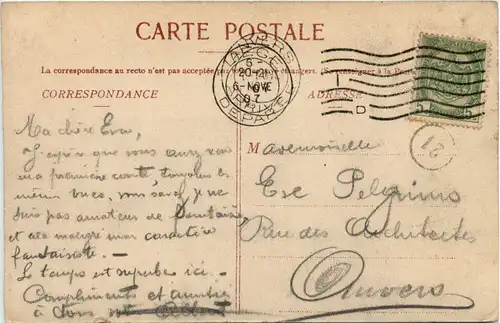 CARTE POSTALE
La correspondance au recto n'est pas acceptée par tous
étrangers. (Se renseigner à la Poste
CORRESPONDANCE
ADRESSE
ANVERS
DEPART
6-NOVE
07
D
5
5
21
Ma chère Eva,
J'espère que vous aurez reçu
ma première carte, toujours les
mêmes vues, vous savez je ne
suis pas amateur de
et cela malgré mon caractère
fantaisiste. —
Le temps est superbe ici. —
Compliments et amitiés
à tous
Mademoiselle
Eve Pelgrims
Rue des Architectes
Anvers